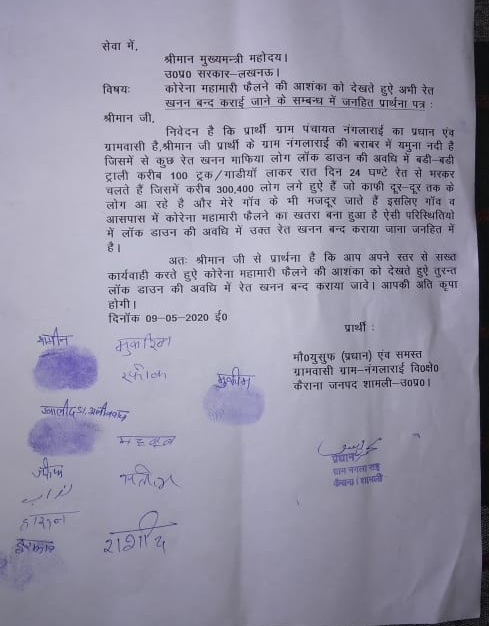 सेवा में,
श्रीमान मुख्यमन्त्री महोदय।
उ0प्र0 सरकार–लखनऊ।
विषयः कोरेना महामारी फैलने की आशंका को देखते हुऐ अभी रेत
खनन बन्द कराई जाने के सम्बन्ध में जनहित प्रार्थना पत्र :
श्रीमान जी,
निवेदन है कि प्रार्थी ग्राम पंचायत नंगलाराई का प्रधान एंव
ग्रामवासी है,श्रीमान जी प्रार्थी के ग्राम नंगलाराई की बराबर में यमुना नदी है
जिसमें से कुछ रेत खनन माफिया लोग लॉक डाउन की अवधि में बडी–बडी
ट्राली करीब 100 ट्रक/गाडीयॉ लाकर रात दिन 24 घण्टे रेत से भरकर
चलते हैं जिसमें करीब 300,400 लोग लगे हुऐ हैं जो काफी दूर–दूर तक के
लोग आ रहे है और मेरे गॉव के भी मजदूर जाते हैं इसलिए गॉव व
आसपास में कोरेना महामारी फैलने का खतरा बना हुआ है ऐसी परिस्थितियो
में लॉक डाउन की अवधि में उक्त रेत खनन बन्द कराया जाना जनहित में
है।
अतः श्रीमान जी से प्रार्थना है कि आप अपने स्तर से सख्त
कार्यवाही करते हुऐ कोरेना महामारी फैलने की आशंका को देखते हुऐ तुरन्त
लॉक डाउन की अवधि में रेत खनन बन्द कराया जावे। आपकी अति कृपा
होगी।
दिनॉक 09-05-2020 ई0
प्रार्थी :
मौ0युसुफ (प्रधान) एंव समस्त
ग्रामवासी ग्राम–नंगलाराई वि0क्षे0
कैराना जनपद शामली–उ0प्र0।
मुकीम
प्रधान
ग्राम नंगला राई
कैराना (शामली)
हारून
राशीद